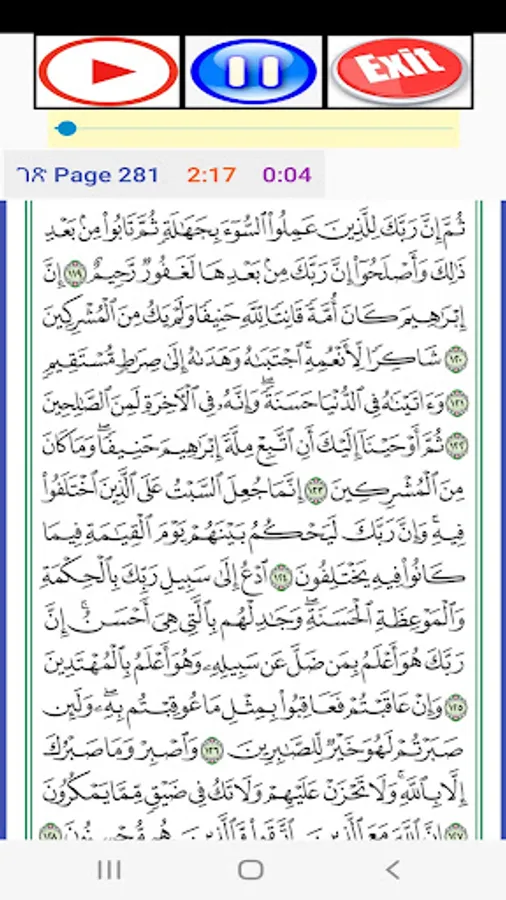 Exit
ገጽ Page 281 2:17 0:04
ثُمَّ إِنَّ رَبَّكَ لِلَّذِينَ عَمِلُوا۟ ٱلسُّوٓءَ بِجَهَٰلَةٍ ثُمَّ تَابُوا۟ مِنۢ بَعْدِ
ذَٰلِكَ وَأَصْلَحُوٓا۟ إِنَّ رَبَّكَ مِنۢ بَعْدِهَا لَغَفُورٌ رَّحِيمٌ ١١٩ إِنَّ
إِبْرَٰهِيمَ كَانَ أُمَّةً قَانِتًا لِّلَّهِ حَنِيفًا وَلَمْ يَكُ مِنَ ٱلْمُشْرِكِينَ
١٢٠ شَاكِرًا لِّأَنْعُمِهِ ۚ ٱجْتَبَىٰهُ وَهَدَىٰهُ إِلَىٰ صِرَٰطٍ مُّسْتَقِيمٍ
١٢١ وَءَاتَيْنَٰهُ فِى ٱلدُّنْيَا حَسَنَةً ۖ وَإِنَّهُۥ فِى ٱلْءَاخِرَةِ لَمِنَ ٱلصَّٰلِحِينَ
١٢٢ ثُمَّ أَوْحَيْنَآ إِلَيْكَ أَنِ ٱتَّبِعْ مِلَّةَ إِبْرَٰهِيمَ حَنِيفًا ۖ وَمَا كَانَ
مِنَ ٱلْمُشْرِكِينَ ١٢٣ إِنَّمَا جُعِلَ ٱلسَّبْتُ عَلَى ٱلَّذِينَ ٱخْتَلَفُوا۟
فِيهِ ۚ وَإِنَّ رَبَّكَ لَيَحْكُمُ بَيْنَهُمْ يَوْمَ ٱلْقِيَٰمَةِ فِيمَا
كَانُوا۟ فِيهِ يَخْتَلِفُونَ ١٢٤ ٱدْعُ إِلَىٰ سَبِيلِ رَبِّكَ بِٱلْحِكْمَةِ
وَٱلْمَوْعِظَةِ ٱلْحَسَنَةِ ۖ وَجَٰدِلْهُم بِٱلَّتِى هِىَ أَحْسَنُ ۚ إِنَّ
رَبَّكَ هُوَ أَعْلَمُ بِمَن ضَلَّ عَن سَبِيلِهِۦ وَهُوَ أَعْلَمُ بِٱلْمُهْتَدِينَ
١٢٥ وَإِنْ عَاقَبْتُمْ فَعَاقِبُوا۟ بِمِثْلِ مَا عُوقِبْتُم بِهِۦ ۖ وَلَئِن
صَبَرْتُمْ لَهُوَ خَيْرٌ لِّلصَّٰبِرِينَ ١٢٦ وَٱصْبِرْ وَمَا صَبْرُكَ
إِلَّا بِٱللَّهِ ۚ وَلَا تَحْزَنْ عَلَيْهِمْ وَلَا تَكُ فِى ضَيْقٍ مِّمَّا يَمْكُرُونَ
١٢٧ إِنَّ ٱللَّهَ مَعَ ٱلَّذِينَ ٱتَّقَوا۟ وَّٱلَّذِينَ هُم مُّحْسِنُونَ ١٢٨